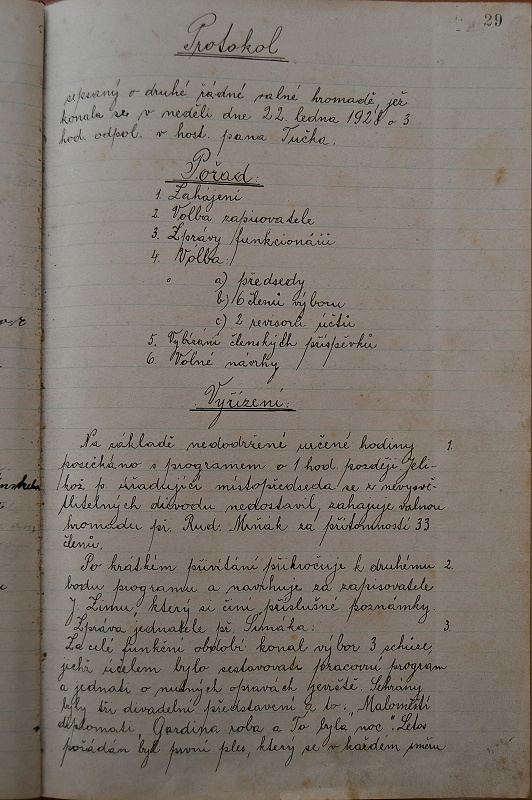 29
Protokol
sepsaný o druhé řádné valné hromadě, jež
konala se v neděli dne 22. ledna 1928 o 3
hod. odpol. v host. pana Tučka.
Pořad:
1. Zahájení
2. Volba zapisovatele
3. Zprávy funkcionářů
4. Volba:
a) předsedy
b) 6 členů výboru
c) 2 revisorů účtů
5. Vybírání členských příspěvků
6. Volné návrhy
Vyřízení:
Na základě nedodržené určené hodiny 1.
posečkáno s programem o 1 hod. později. Jeli-
kož p. úřadující místopředseda se z nevysvě-
tlitelných důvodu nedostavil, zahajuje valnou
hromadu př. Rud. Mrňák za přítomnosti 33
členů.
Po krátkém přivítání přikročuje k druhému 2.
bodu programu a navrhuje za zapisovatele
J. Zimu, který si činí příslušné poznámky.
Zpráva jednatele př. Šimáka: 3.
Za celé funkční období konal výbor 3 schůze,
jichž účelem bylo sestavovati pracovní program
a jednati o nutných opravách jeviště. Sehrány
byly tři divadelní představení a to: "Maloměstí
diplomati, Gardina roba a To byla noc". Letos
pořádán byl první ples, který se v každém směru